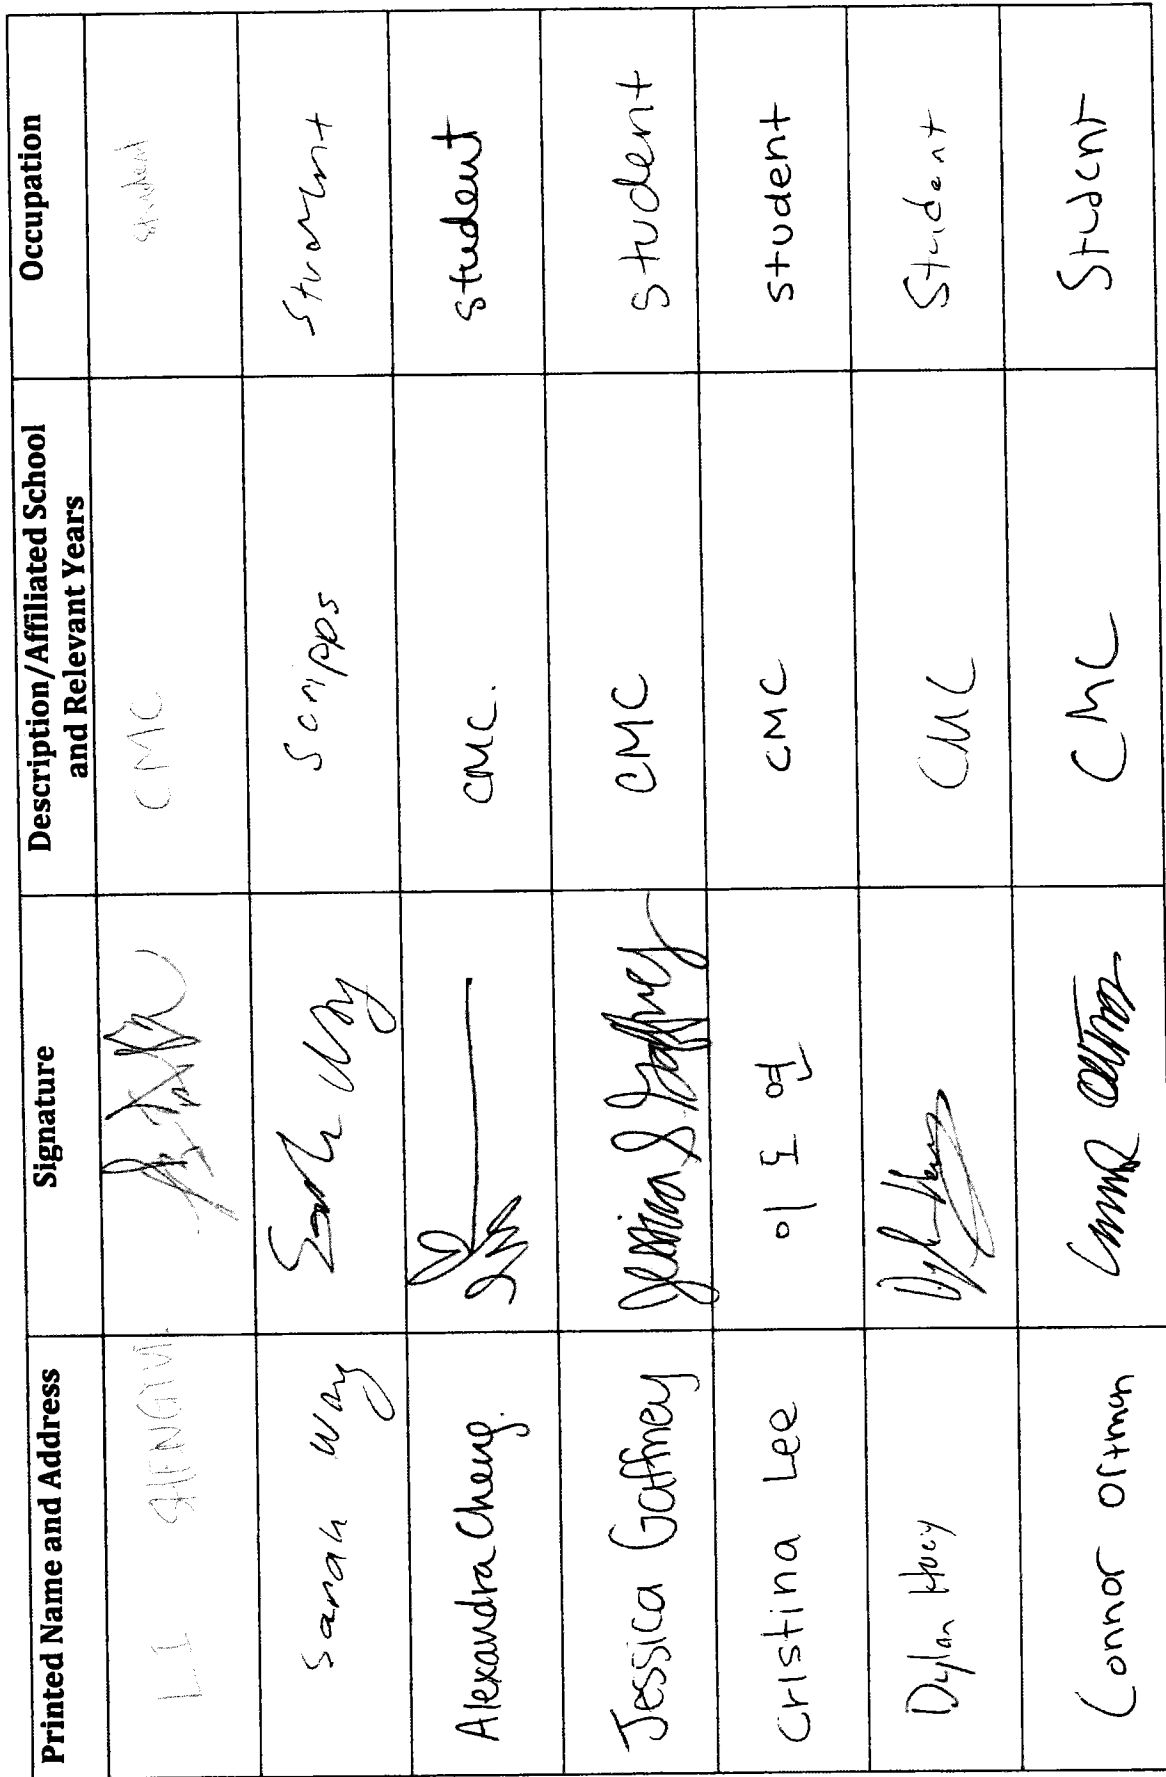 Printed Name and Address Signature Description/Affiliated School Occupation
and Relevant Years
LI SHENGYU CMC student
Sarah Wang Scripps Student
Alexandra Cheng. CMC. student
Jessica Gaffney Jessica S Gaffney CMC student
Cristina Lee 이도연 CMC student
Dylan Huey CMC Student
Connor Ortman CMC Student